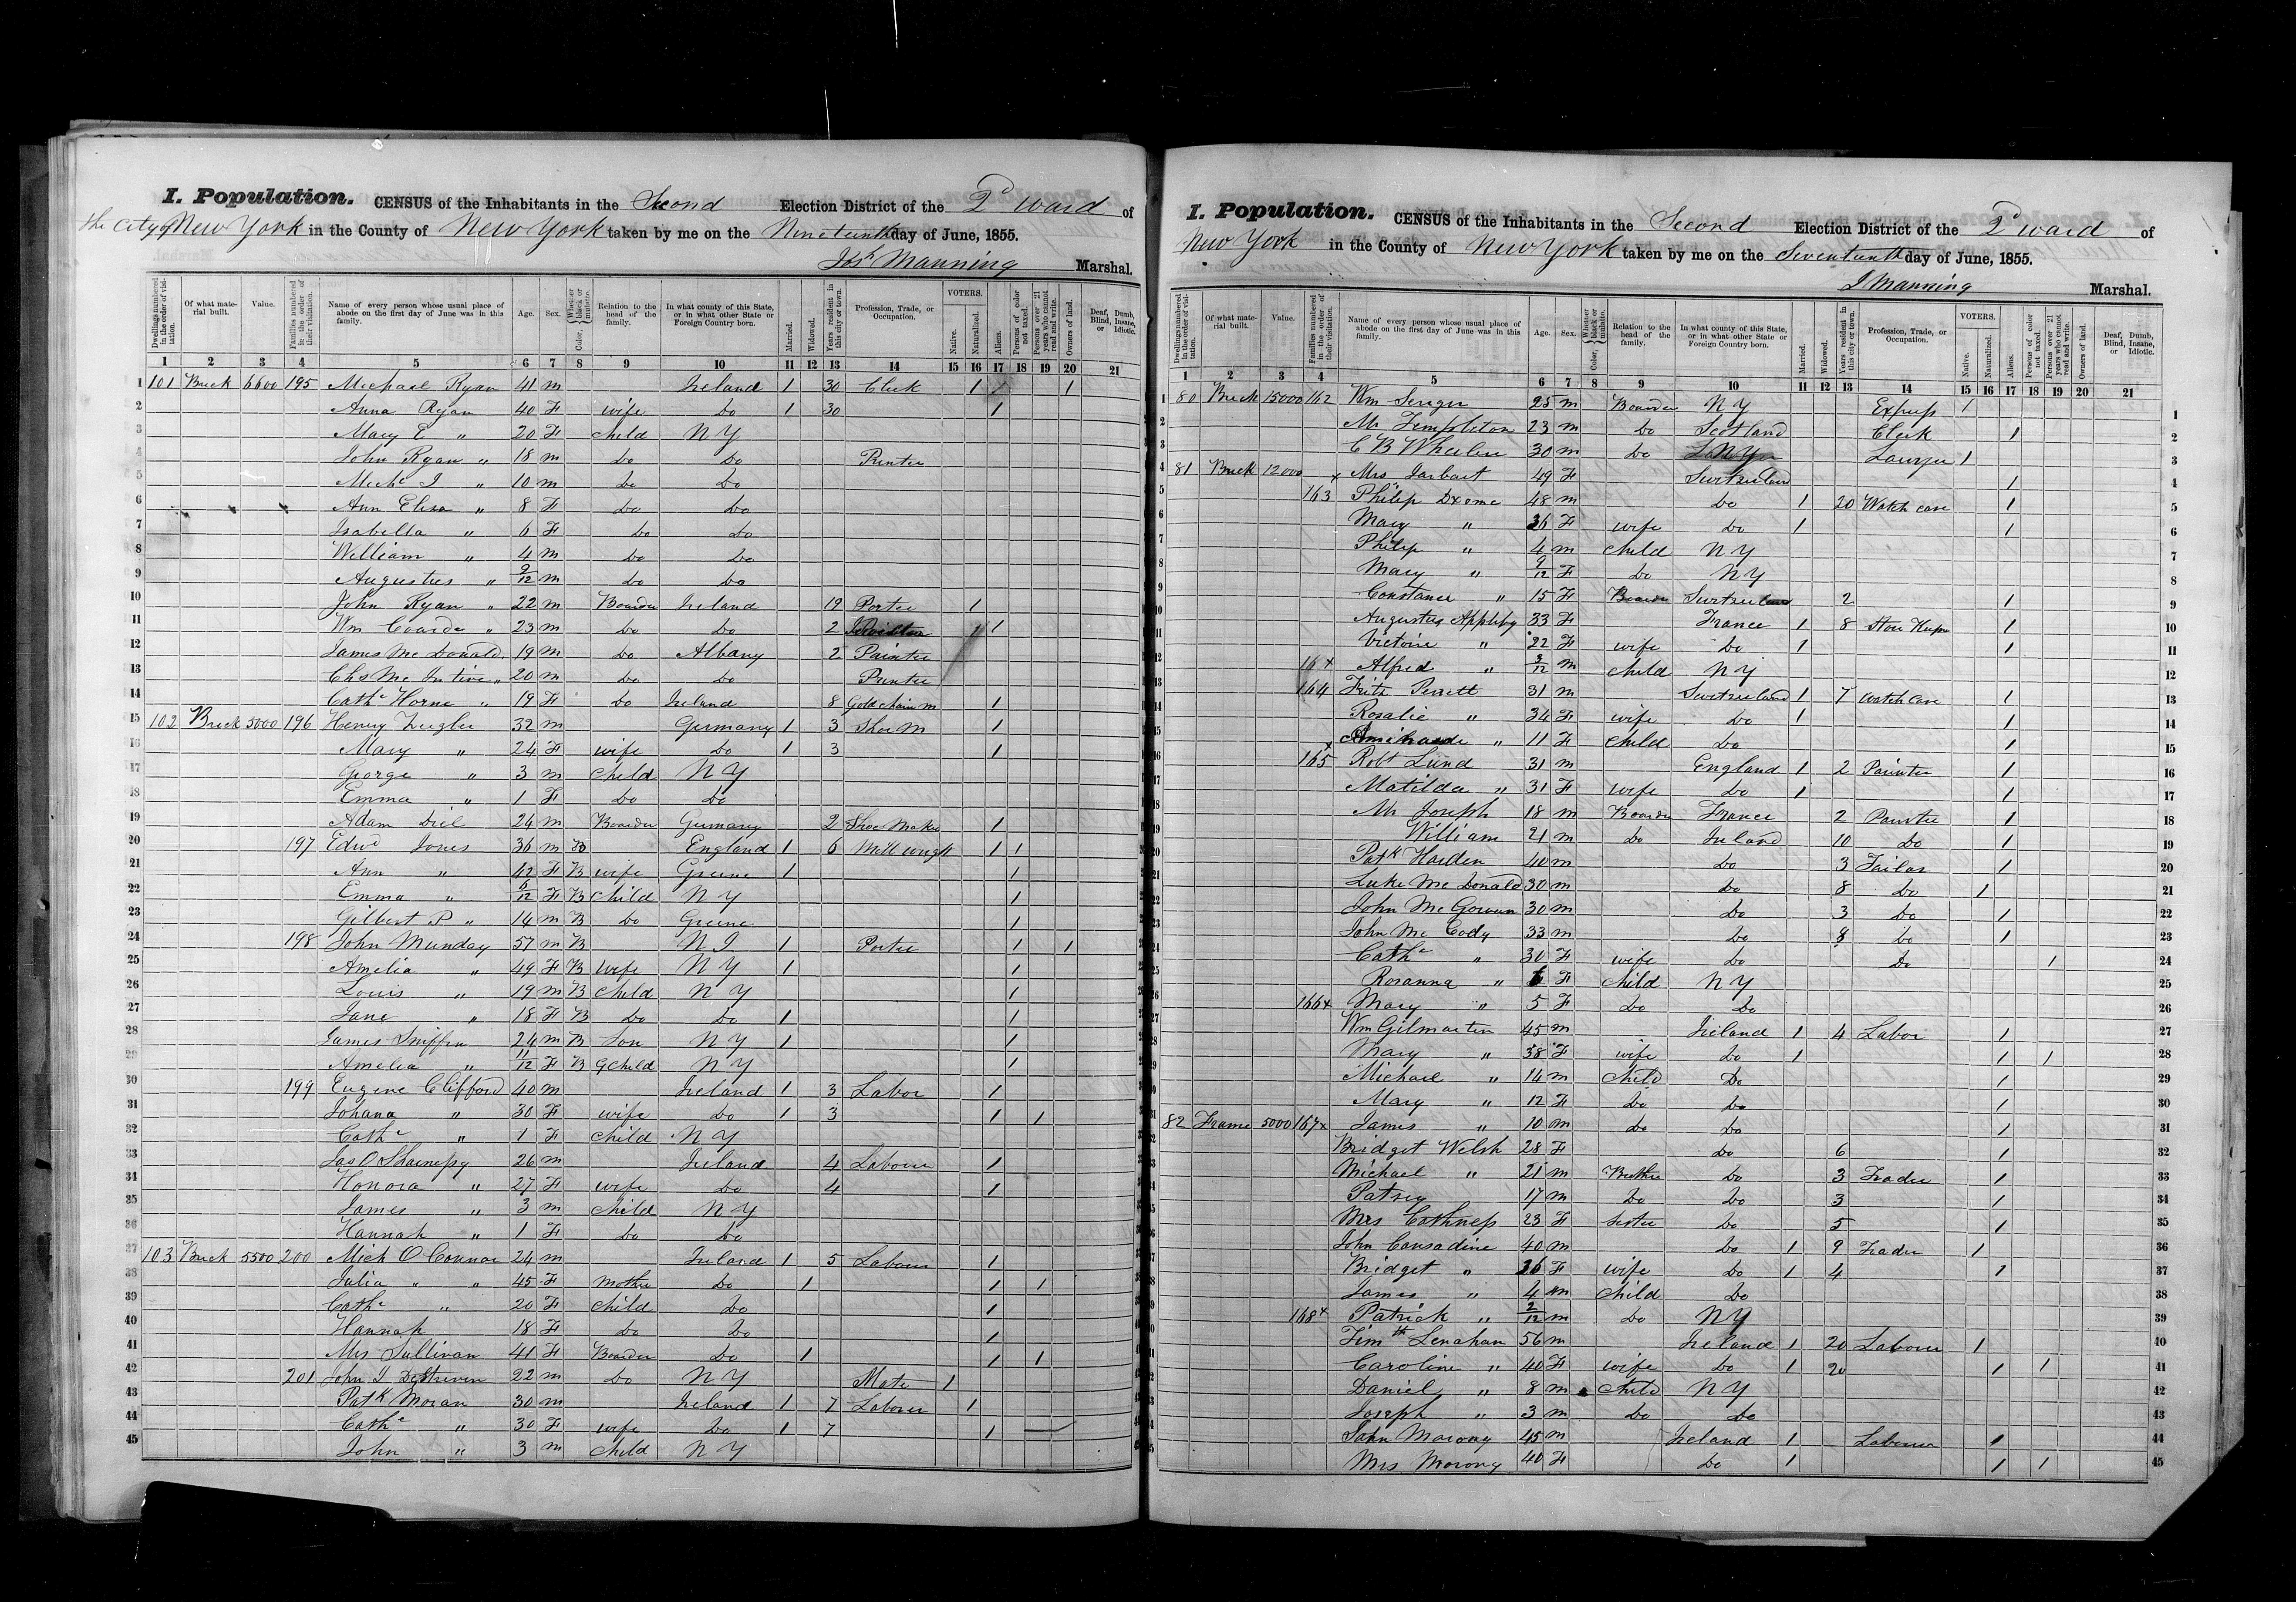 I. Population. CENSUS of the Inhabitants in the Second Election District of the 2d ward of
the City of New York in the County of New York taken by me on the Nineteenth day of June, 1855.
Jos. Manning Marshal.
Dwellings numbered in the order of visitation. Of what material built. Value. Families numbered in the order of their visitation. Name of every person whose usual place of abode on the first day of June was in this family. Age. Sex. Color, Whether black or mulatto. Relation to the head of the family. In what county of this State, or in what other State or Foreign Country born. Married. Widowed. Years resident in this city or town. Profession, Trade, or Occupation. VOTERS. Native. Naturalized. Aliens. Persons of color not taxed. Persons over 21 years who cannot read and write. Owners of land. Deaf, Dumb, Blind, Insane, or Idiotic.
1 2 3 4 5 6 7 8 9 10 11 12 13 14 15 16 17 18 19 20 21
1 101 Brick 6600 195 Michael Ryan 41 m Ireland 1 30 Clerk 1 1 1
2 Anna Ryan 40 F wife Do 1 30 1
3 Mary E " 20 F child N Y
4 John Ryan " 18 m Do Do Printer
5 Michl J " 10 m Do Do
6 Ann Eliza " 8 F Do Do
7 Isabella " 6 F Do Do
8 William " 4 m Do Do
9 Augustus " 9/12 m Do Do
10 John Ryan " 22 m Boarder Ireland 19 Porter 1
11 Wm " 23 m Do Do 2 1 1
12 James Mc Donald 19 m Do Albany 2 Painter
13 Chs Mc Intire " 20 m Do Do Printer
14 Cathe Horne " 19 F Do Ireland 8 Gold chain m 1
15 102 Brick 5000 196 Henry Zeigler 32 m Germany 1 3 Shoe M 1
16 Mary " 24 F wife Do 1 3 1
17 George " 3 m child N Y
18 Emma " 1 F Do Do
19 Adam Diel 24 m Boarder Germany 2 Shoe Maker 1
20 197 Edwd Jones 36 m B England 1 6 Mill wright 1 1
21 Ann " 42 F B wife Greene 1 1
22 Emma " 6/12 F B child N Y 1
23 Gilbert P " 14 m B Do Greene 1
24 198 John Munday 57 m B N J 1 Porter 1 1
25 Amelia " 49 F B wife N Y 1 1
26 Louis " 19 m B child N Y 1
27 Jane " 18 F B Do Do 1 1
28 James Sniffen 24 m B Son N Y 1 1
29 Amelia " 11/12 F B G child N Y 1
30 199 Eugene Clifford 40 m Ireland 1 3 Labor 1
31 Johana " 30 F wife Do 1 3 1 1
32 Cathe " 1 F child N Y
33 Jas O 26 m Ireland 4 Labourer 1
34 Honora " 27 F wife Do 4 1
35 James " 3 m child N Y
36 Hannah " 1 F Do Do
37 103 Brick 5500 200 Mich O Connor 24 m Ireland 1 5 Labourer 1
38 Julia " " 45 F Mother Do 1 1 1
39 Cathe " 20 F child Do 1
40 Hannah 18 F Do Do 1
41 Mrs Sullivan 41 F Boarder Do 1 1 1
42 201 John J 22 m Do N Y Mate 1
43 Patk Moran 30 m Ireland 1 7 Laborer 1
44 Cathe " 30 F wife Do 1 7 1
45 John " 3 m child N Y
I. Population. CENSUS of the Inhabitants in the Second Election District of the 2d ward of
New York in the County of New York taken by me on the Seventeenth day of June, 1855.
J Manning Marshal.
Dwellings numbered in the order of visitation. Of what material built. Value. Families numbered in the order of their visitation. Name of every person whose usual place of abode on the first day of June was in this family. Age. Sex. Color, Whether black or mulatto. Relation to the head of the family. In what county of this State, or in what other State or Foreign Country born. Married. Widowed. Years resident in this city or town. Profession, Trade, or Occupation. VOTERS. Native. Naturalized. Aliens. Persons of color not taxed. Persons over 21 years who cannot read and write. Owners of land. Deaf, Dumb, Blind, Insane, or Idiotic.
1 2 3 4 5 6 7 8 9 10 11 12 13 14 15 16 17 18 19 20 21
1 80 Brick 15000 162 Wm 25 m Boarder N Y Express 1 1
2 Mr Templeton 23 m Do Scotland Clerk 1 2
3 C B Wheeler 30 m Do Lawyer 1 3
4 81 Brick 12000 Mrs Jarbart 49 F Switzerland 1 4
5 163 Philip 48 m Do 1 20 Watch case 1 5
6 Mary " 36 F wife Do 1 1 6
7 Philip " 4 m child N Y 7
8 Mary " 9/12 F Do N Y 8
9 Constance " 15 F Boarder Switzerland 2 1 9
10 Augustus Appleby 33 F France 1 8 Store Keeper 1 10
11 Victoire " 22 F wife Do 1 1 11
12 Alfred " 3/12 m child N Y 12
13 164 Fritz Perrett 31 m Switzerland 1 7 watch case 1 13
14 Rosalie " 34 F wife Do 1 1 14
15 " 11 F child Do 1 15
16 165 Robt Lund 31 m England 1 2 Painter 1 16
17 Matilda " 31 F wife Do 1 1 17
18 Mr Joseph 18 m Boarder France 2 Painter 1 18
19 William 21 m Do Ireland 10 Do 1 19
20 Patk Harden 40 m Do 3 Tailor 1 20
21 Luke Mc Donald 30 m Do 8 Do 1 21
22 John Mc Gowan 30 m Do 3 Do 1 22
23 John Mc Cody 33 m Do 8 Do 1 23
24 Cathe " 30 F wife Do Do 1 24
25 Rosanna " 6 F child N Y 25
26 166 Mary " 5 F Do Do 26
27 Wm Gilmartin 45 m Ireland 1 4 Labor 1 27
28 Mary " 38 F wife Do 1 1 1 28
29 Michael " 14 m child Do 1 29
30 Mary " 12 F Do Do 1 30
31 82 Frame 5000 167 James " 10 m Do Do 1 31
32 Bridget Welsh 28 F Do 6 1 32
33 Michael " 21 m Brother Do 3 Trader 1 33
34 Patrey 17 m Do Do 3 1 34
35 Mrs 23 F sister Do 5 1 35
36 John Consadine 40 m Do 1 9 Trader 1 36
37 Bridget " 36 F wife Do 1 4 1 37
38 James " 4 m child Do 38
39 168 Patrick " 2/12 m Do N Y 39
40 Timth Lenahan 56 m Ireland 1 20 Labourer 1 40
41 Caroline " 40 F wife Do 1 20 1 1 41
42 Daniel " 8 m child N Y 42
43 Joseph " 3 m Do Do 43
44 John Morony 45 m Ireland 1 Labourer 1 44
45 Mrs Morony 40 F Do 1 1 1 45